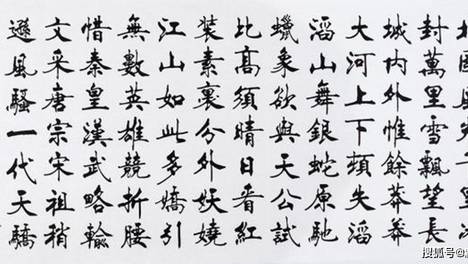 封萬里雪飄望長
城内外惟餘莽莽
大河上下頓失滔
滔山舞銀蛇原馳
蠟象欲與天公試
比高須晴日看紅
裝素裹分外妖嬈
江山如此多嬌引
無數英雄競折腰
惜秦皇漢武略輸
文采唐宗宋祖稍
遜風騷一代天驕
搜狐号@